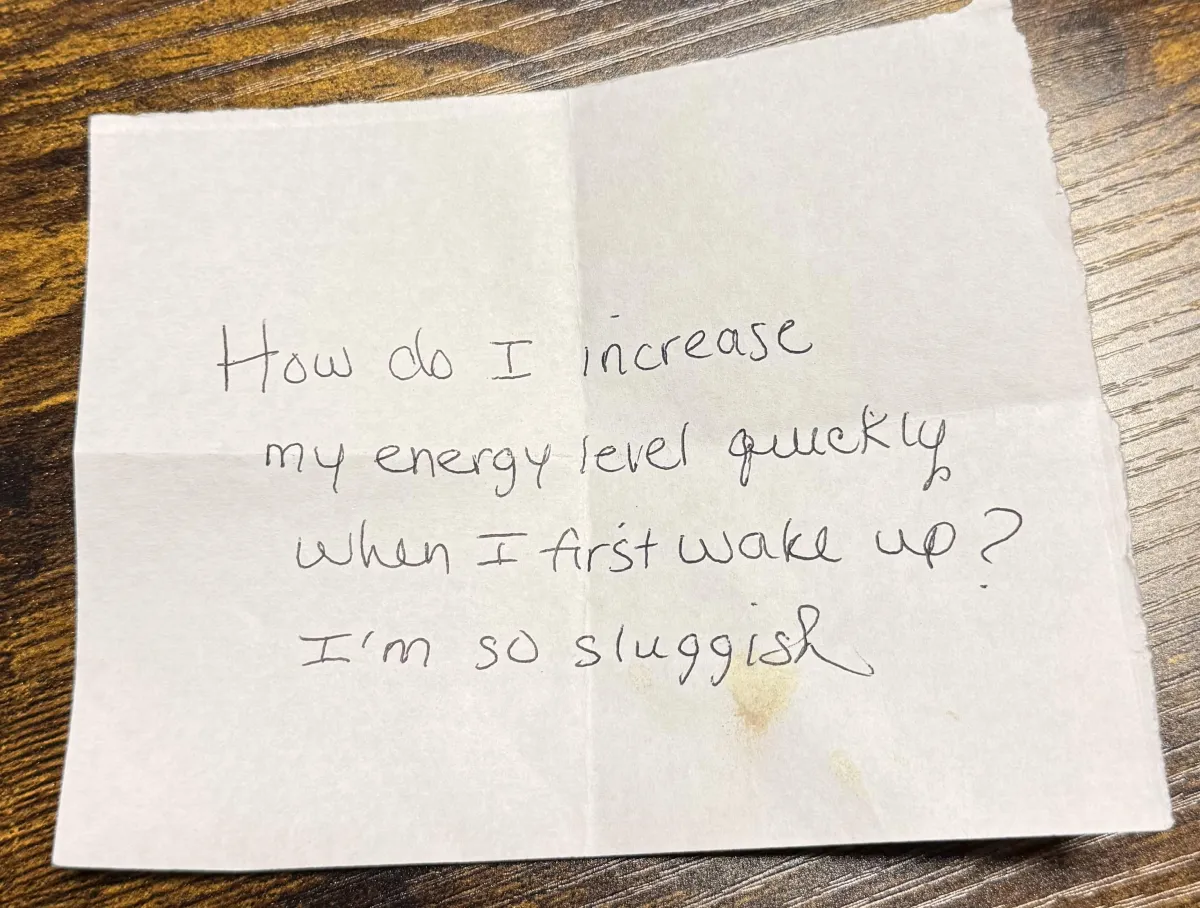 How do I increase
my energy level quickly
when I first wake up?
I'm so sluggish